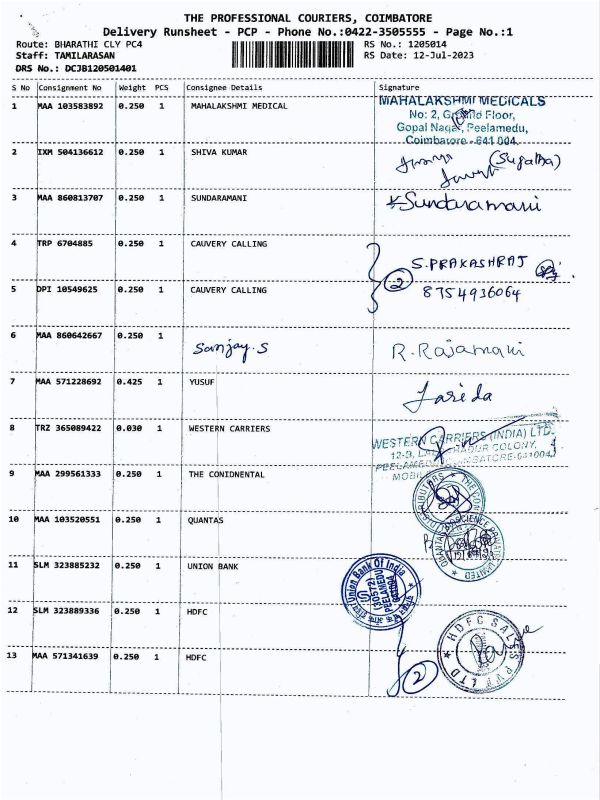 THE PROFESSIONAL COURIERS, COIMBATORE
Delivery Runsheet - PCP - Phone No.:0422-3505555 - Page No.:1
Route: BHARATHI CLY PC4 RS No.: 1205014
Staff: TAMILARASAN RS Date: 12-Jul-2023
DRS No.: DCJB120501401
S No Consignment No Weight PCS Consignee Details Signature
1 MAA 103583892 0.250 1 MAHALAKSHMI MEDICAL
MAHALAKSHMI MEDICALS
No: 2, Grand Floor,
Gopal Nagar, Peelamedu,
Coimbatore - 641 004.
2 IXM 504136612 0.250 1 SHIVA KUMAR (Sugatha)
3 MAA 860813707 0.250 1 SUNDARAMANI Sundaramani
4 TRP 6704885 0.250 1 CAUVERY CALLING S. PRAKASHRAJ
5 DPI 10549625 0.250 1 CAUVERY CALLING 2 8754936064
6 MAA 860642667 0.250 1 Sanjay.S R. Rajamani
7 MAA 571228692 0.425 1 YUSUF Farida
8 TRZ 365089422 0.030 1 WESTERN CARRIERS
WESTERN CARRIERS (INDIA) LTD.
COLONY,
9 MAA 299561333 0.250 1 THE CONIDNENTAL
10 MAA 103520551 0.250 1 QUANTAS
11 SLM 323885232 0.250 1 UNION BANK
Union Bank Of India
12 SLM 323889336 0.250 1 HDFC
HDFC SALES PVT LTD
13 MAA 571341639 0.250 1 HDFC 2